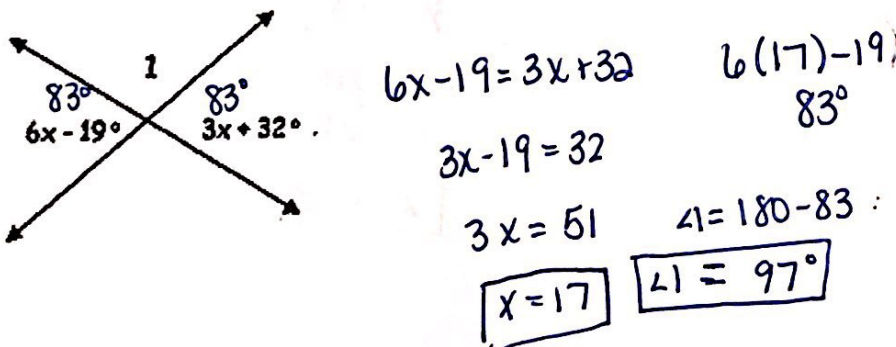 1
83° 83°
6x - 19° 3x + 32° .
6x-19 = 3x+32
3x-19 = 32
3x = 51
x = 17
6(17)-19
83°
∠1 = 180-83 :
∠1 = 97°